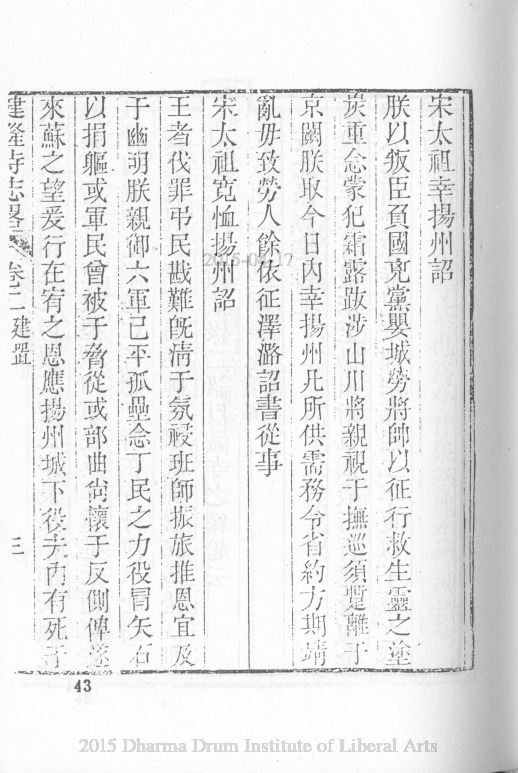 宋太祖幸揚州詔
朕以叛臣負國兇黨嬰城勞將帥以征行救生靈之塗
炭重念蒙犯霜露跋涉山川將親視于撫巡須蹔離于
京闕朕取今日內幸揚州凡所供需務令省約方期靖
亂毋致勞人餘依征澤潞詔書從事
宋太祖寬恤揚州詔
王者伐罪弔民戡難旣清于氛祲班師振旅推恩宜及
于幽明朕親御六軍已平孤壘念丁民之力役冒矢石
以捐軀或軍民曾被于脅從或部曲尙懷于反側俾遂
來蘇之望爰行在宥之恩應揚州城下役夫內有死于
建隆寺志畧 卷之二 建置 三
43
2015-06-17
2015 Dharma Drum Institute of Liberal Arts